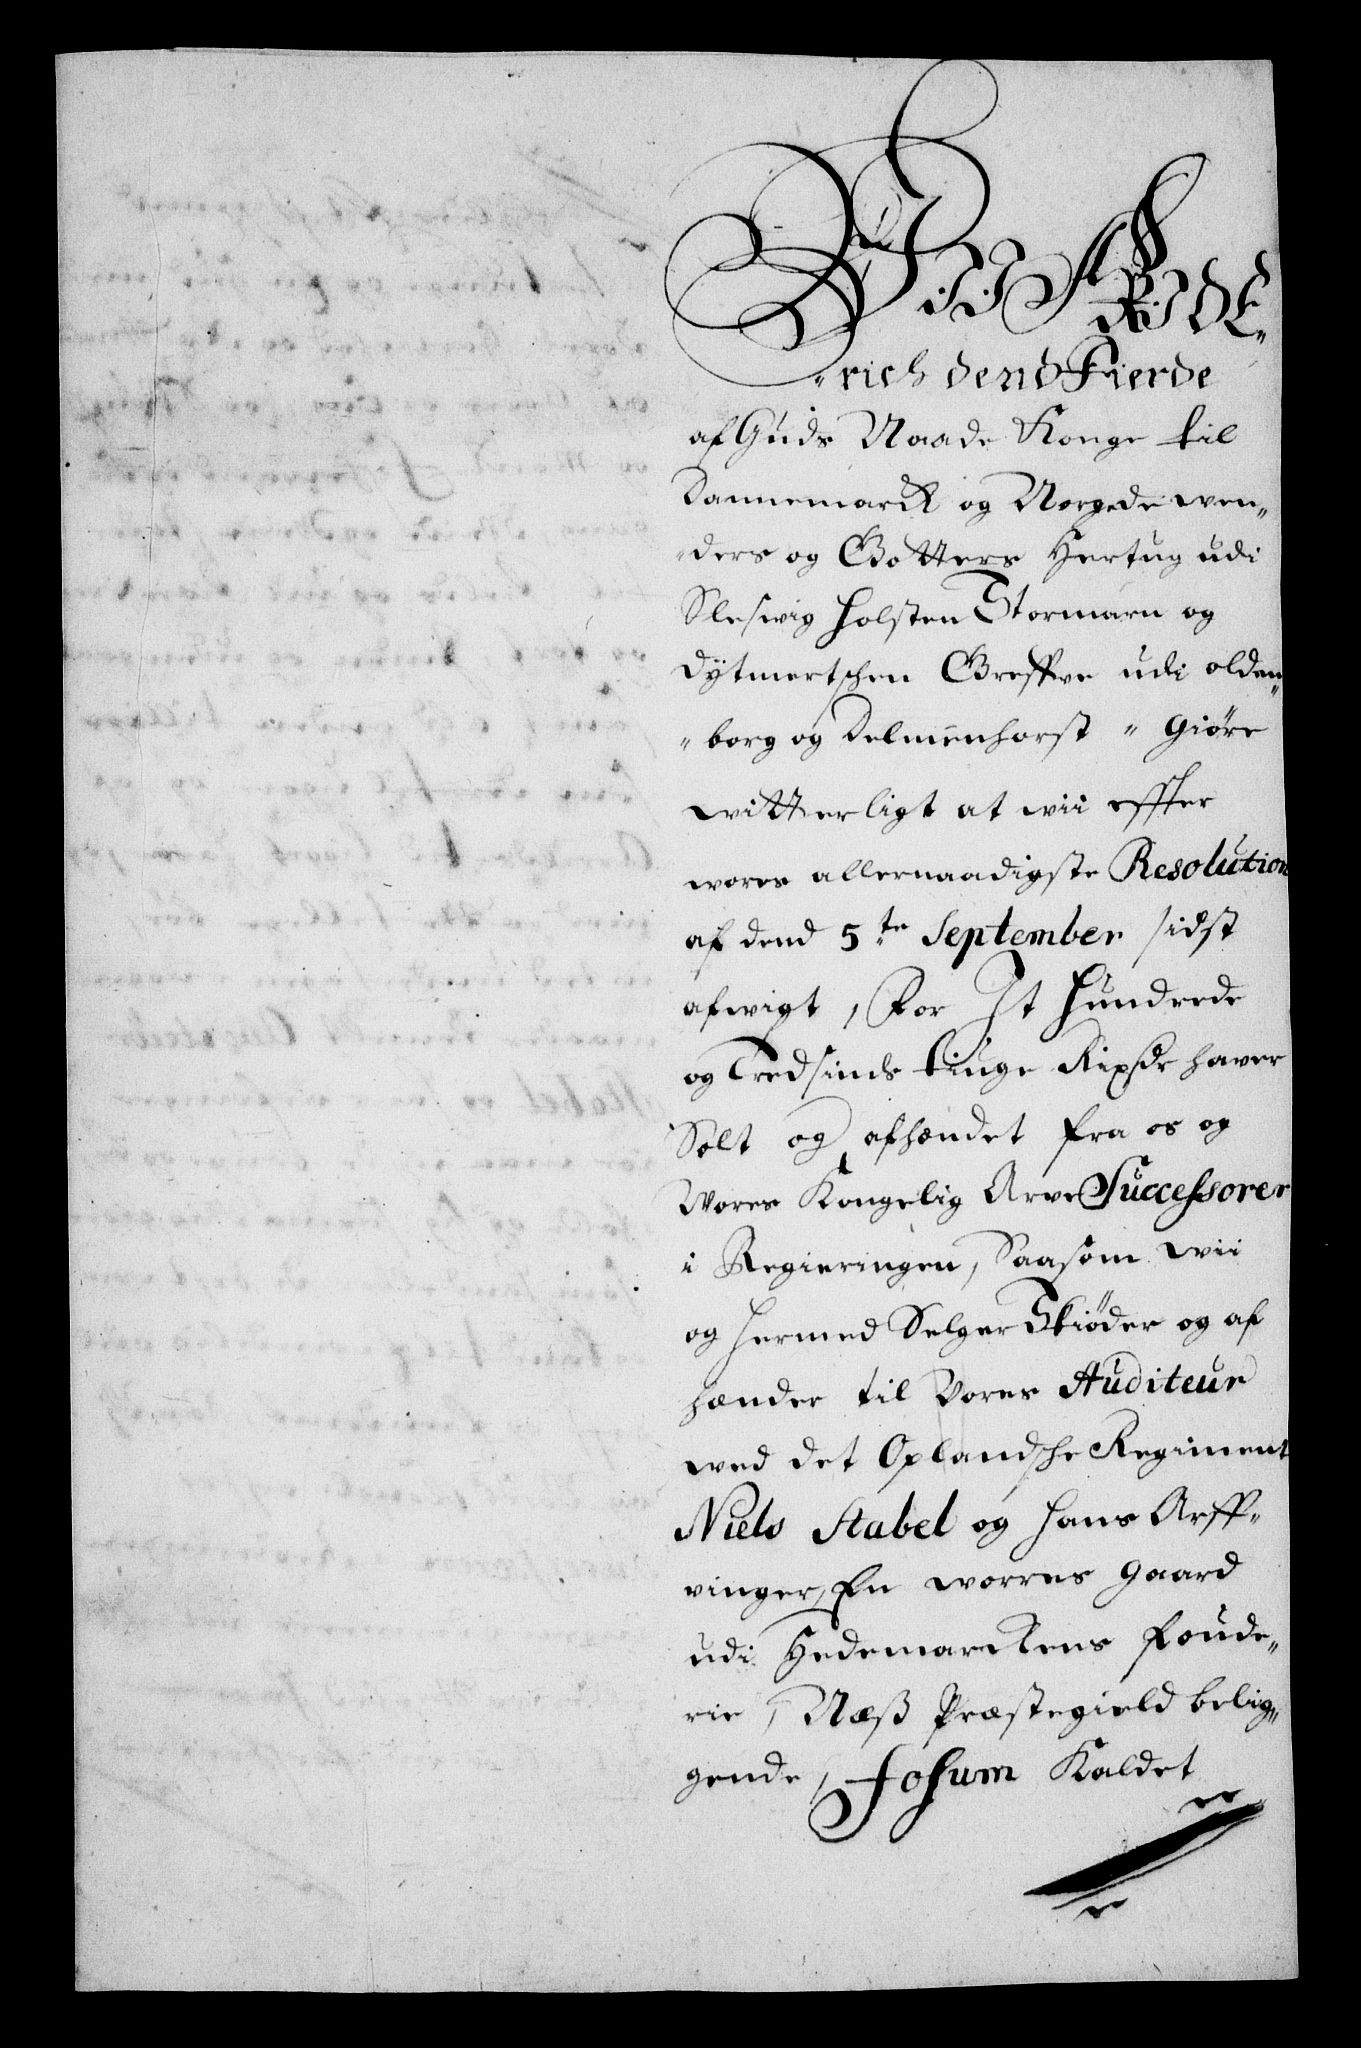 Wii FRIDE„
„rich dend Fierde
af Guds Naade Konge til
Dannemarck og Norge de wen„
„ders og Gotters Hertug udi
Sleswig Holsten Stormarn og
Dytmerschen Greffve udi olden„
„borg og Delmenhorst „ Giöre
witterligt at wii effter
wores allernaadigste Resolution
af dend 5te September sidst
afwigt, For It Hundrede
og Tredsinds tiuge Rixdr haver
Solt og afhændet fra os og
Wores Kongelig Arve Successorer
i Regieringen, Saasom wii
og hermed Selger Skiöder og af
hænder til Vores Auditeur
wed det Oplandsche Regiment
Niels Stabel og hans Arff„
vinger, En worres Gaard
udi Hedemarckens foude„
rie, Næß Præstegield belig„
gende, Josum Kaldet